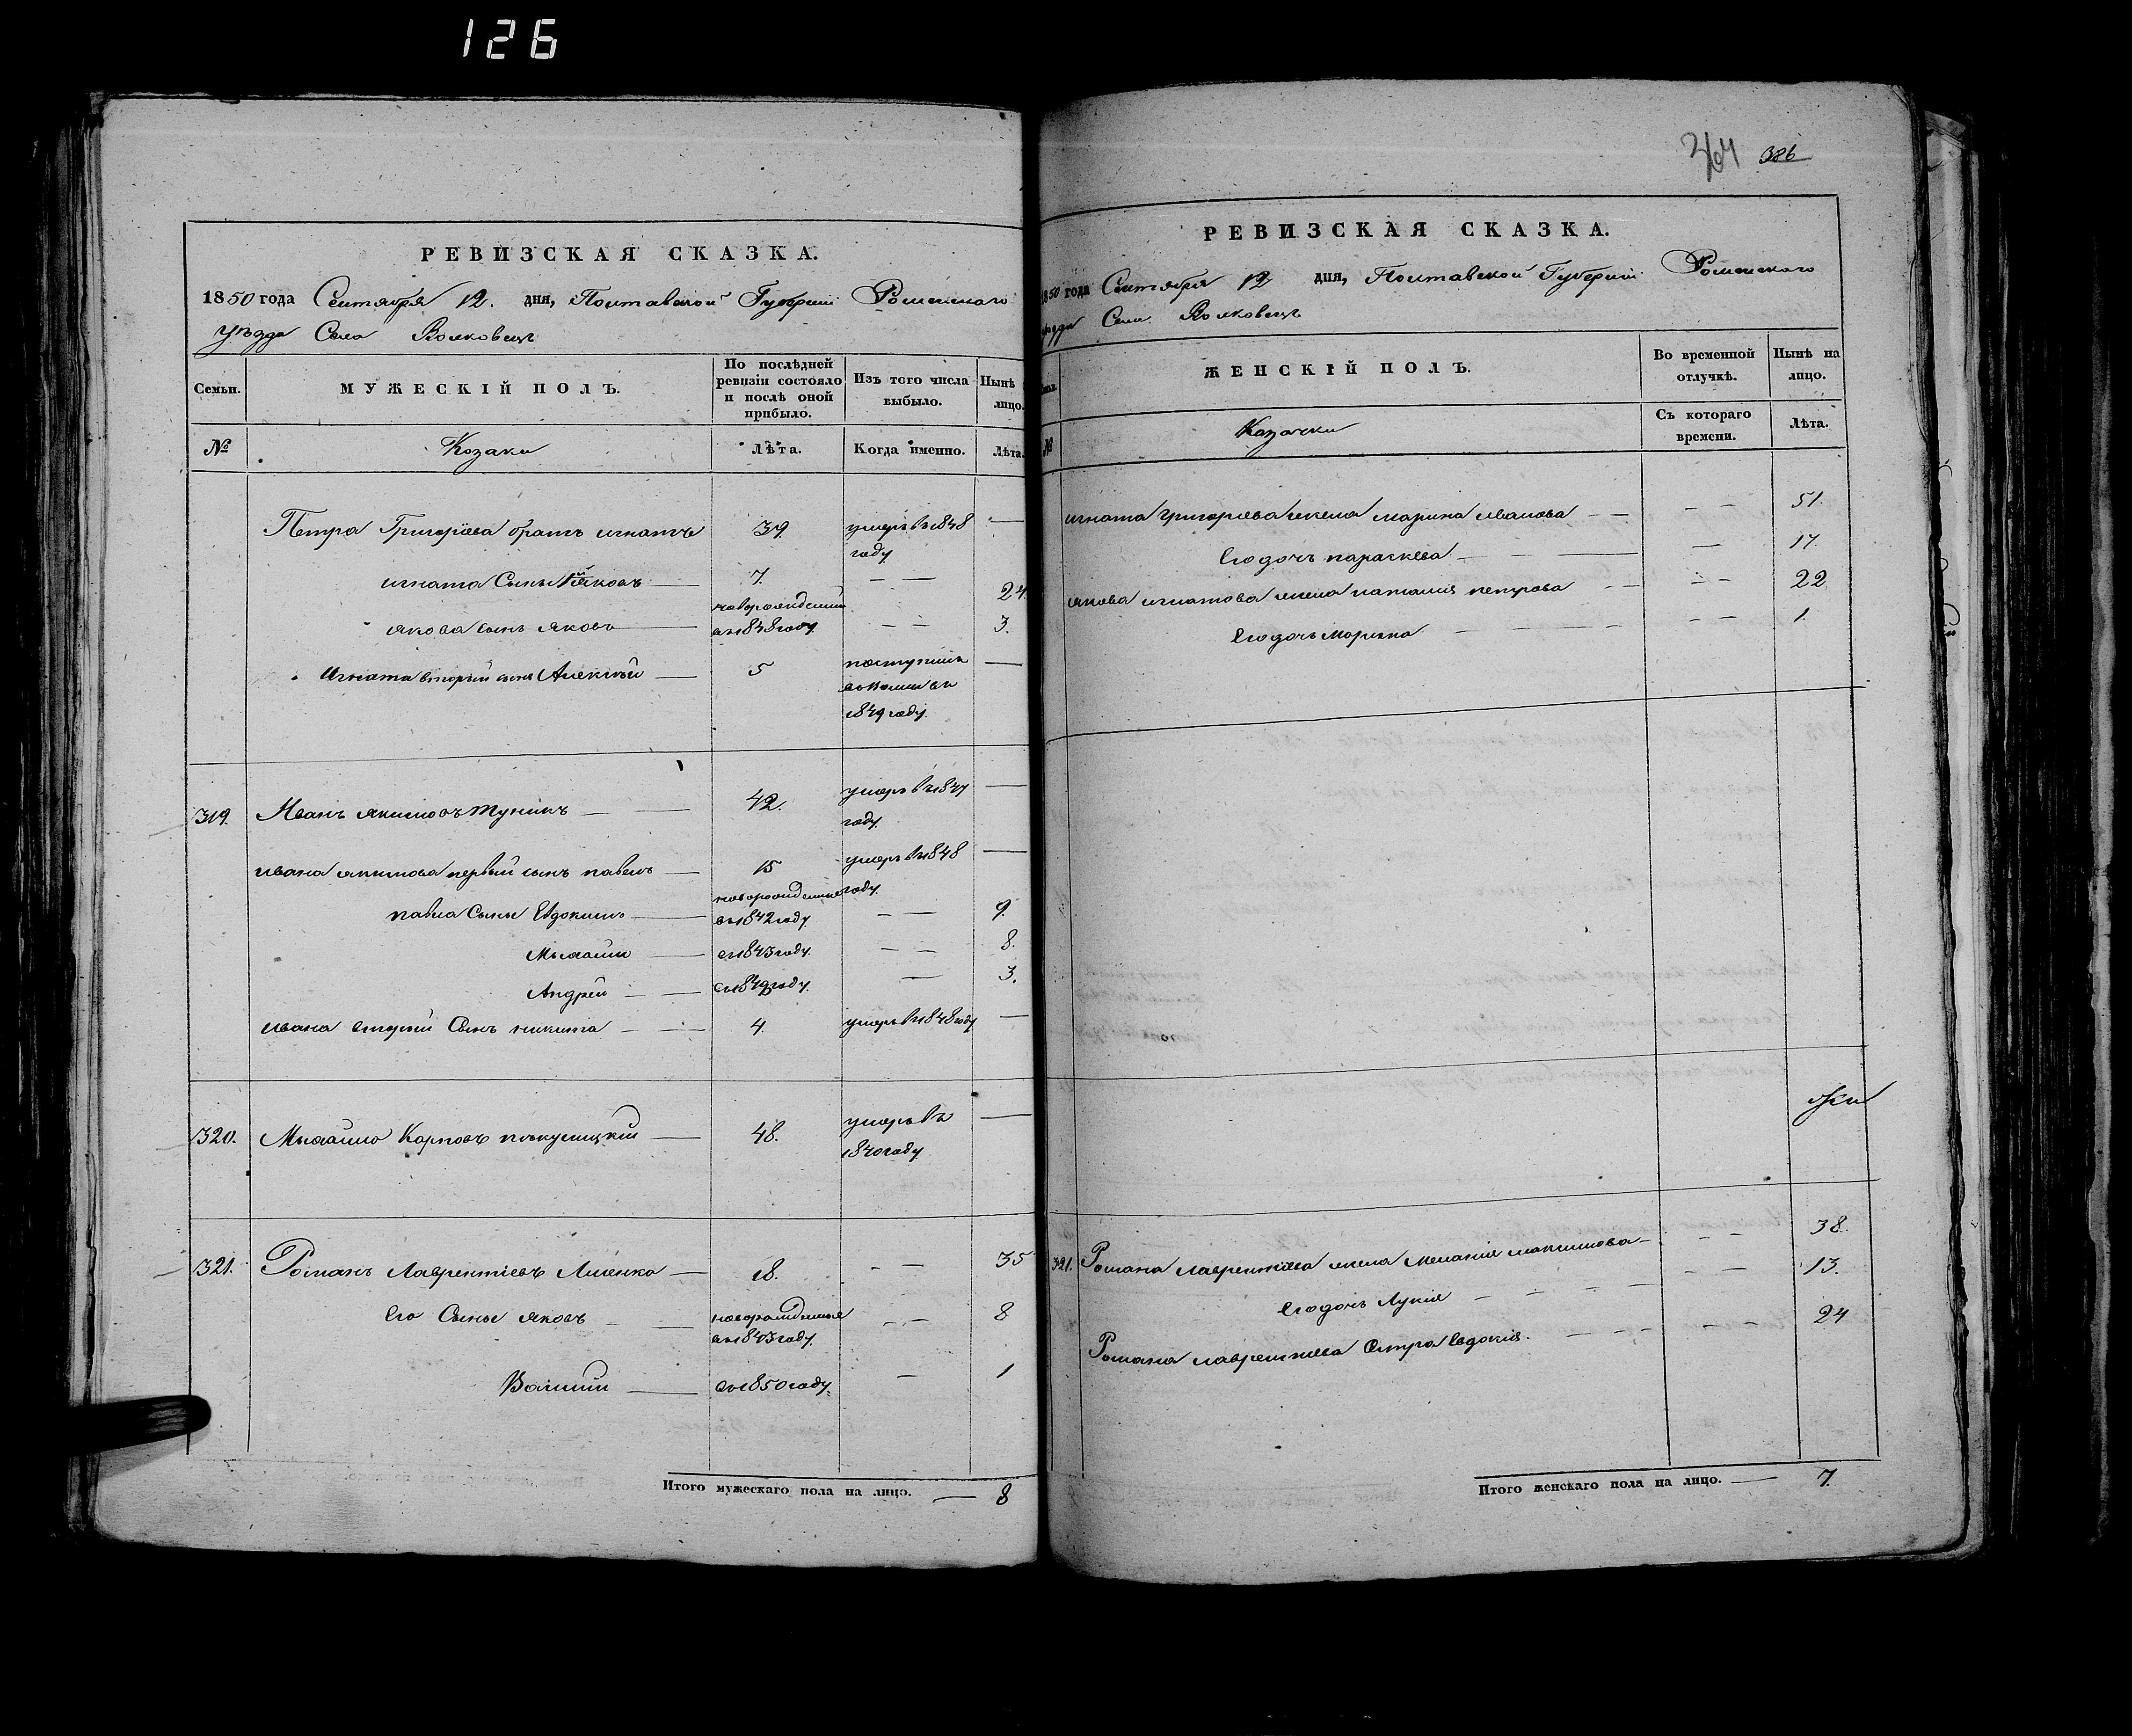 126
РЕВИЗСКАЯ СКАЗКА.
1850 года Сентября 12. дня, Полтавской Губерніи Роменскаго
уѣзда Села Волковецъ
Семьи.
МУЖЕСКІЙ ПОЛЪ.
По послѣдней ревизіи состояло и послѣ оной прибыло.
Изъ того числа выбыло.
Нынѣ лицо.
№
Козаки
Лѣта.
Когда именно.
Лѣта.
Петра Григоріева братъ игнатъ 39. умеръ въ 1848 году —
игната Сынъ 1й яковъ 7. — — 24.
якова сынъ яковъ новорожденый въ 1848 году — — 3.
Игната вторый сынъ Алексѣй 5 поступилъ 1849 году. —
319. Иванъ якимовъ тупикъ 42. умеръ въ 1847 году. —
ивана якимова первый сынъ павелъ 15 умеръ въ 1848 году. —
павла Сыны Евдокимъ новорожденые въ 1842 году — — 9.
Михайло въ 1843 году — — 8.
Андрей въ 1849 году. — 3.
ивана вторый Сынъ никита 4. умеръ въ 1848 году —
320. Михайло Карповъ 48. умеръ въ 1840 году —
321. Романъ Лаврентіевъ Лисенко 18. — — 35
Его Сыны яковъ новорожденые въ 1843 году — — 8
Василій въ 1850 году — 1
Итого мужескаго пола на лицо. — 8
264 386
РЕВИЗСКАЯ СКАЗКА.
1850 года Сентября 12 дня, Полтавской Губерніи Роменскаго
уѣзда Села Волковецъ
ЖЕНСКІЙ ПОЛЪ.
Во временной отлучкѣ.
Нынѣ на лицо.
№
Козачки
Съ котораго времени.
Лѣта.
игната григоріева жена марина иванова — — 51.
Его дочь параскева — 17.
якова игнатова жена наталія петрова — — 22
Его дочь Марина — — 1.
321. Романа лаврентіева жена Меланія максимова — — 38.
Его дочь Лукія — — 13.
Романа лаврентіева сестра Евдокія — — 24
Итого женскаго пола на лицо. — 7.